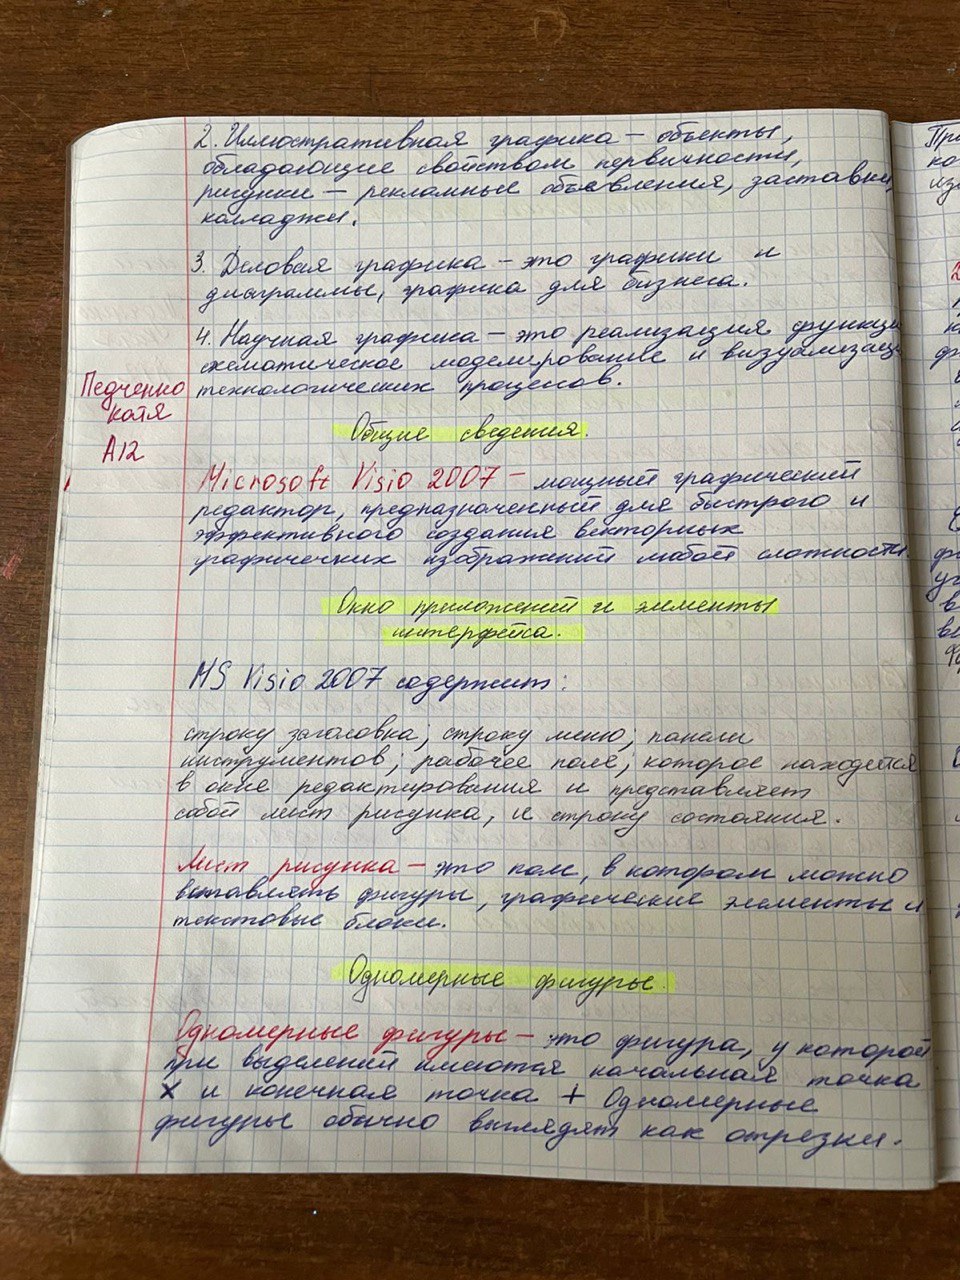 2. Иллюстративная графика – объекты,
обладающие свойством первичности,
рисунки – рекламные объевления, заставки,
колладжи.
3. Деловая графика – это графики и
диаграммы, графика для бизнеса.
4. Научная графика – это реализация функци
схематическое моделирование и визуализац
технологических процесов.
Педченко
катя
А12
Общие сведения.
Microsoft Visio 2007 – мощный графический
редактор, предназначенный для быстрого и
эффективного создания векторных
графических изображений любой сложности
Окно приложений и элементы
интерфейса.
MS Visio 2007 содержит:
строку заголовка; строку меню; панели
инструментов; рабочее поле, которое находется
в окне редактирования и представляет
собой лист рисунка, и строку состояния.
Лист рисунка – это поле, в котором можно
вставлять фигуры, графические элементы и
текстовые блоки.
Одномерные фигуры.
Одномерные фигуры – это фигура, у которой
при выделений имеются начальная точка
X и конечная точка + Одномерные
фигуры обычно выглядят как отрезки.